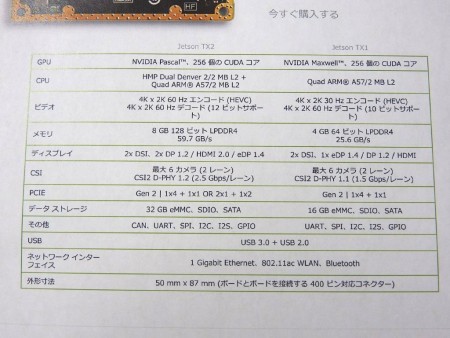 HF
今すぐ購入する
Jetson TX2 Jetson TX1
GPU NVIDIA Pascal™、256 個の CUDA コア NVIDIA Maxwell™、256 個の CUDA コア
CPU HMP Dual Denver 2/2 MB L2 + Quad ARM® A57/2 MB L2
Quad ARM® A57/2 MB L2
ビデオ 4K x 2K 60 Hz エンコード (HEVC) 4K x 2K 30 Hz エンコード (HEVC)
4K x 2K 60 Hz デコード (12 ビットサポー 4K x 2K 60 Hz デコード (10 ビットサポー
ト) ト)
メモリ 8 GB 128 ビット LPDDR4 4 GB 64 ビット LPDDR4
59.7 GB/s 25.6 GB/s
ディスプレイ 2x DSI、2x DP 1.2 / HDMI 2.0 / eDP 1.4 2x DSI、1x eDP 1.4 / DP 1.2 / HDMI
CSI 最大 6 カメラ (2 レーン) 最大 6 カメラ (2 レーン)
CSI2 D-PHY 1.2 (2.5 Gbps/レーン) CSI2 D-PHY 1.1 (1.5 Gbps/レーン)
PCIE Gen 2 | 1x4 + 1x1 OR 2x1 + 1x2 Gen 2 | 1x4 + 1x1
データ ストレージ 32 GB eMMC、SDIO、SATA 16 GB eMMC、SDIO、SATA
その他 CAN、UART、SPI、I2C、I2S、GPIO UART、SPI、I2C、I2S、GPIO
USB USB 3.0 + USB 2.0
ネットワーク インター 1 Gigabit Ethernet、802.11ac WLAN、Bluetooth
フェイス
外形寸法 50 mm x 87 mm (ボードとボードを接続する 400 ピン対応コネクター)